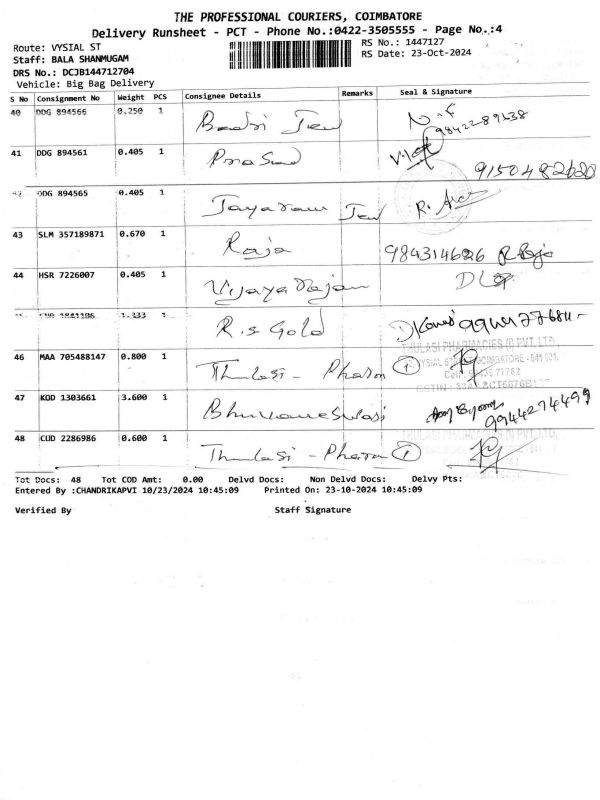 THE PROFESSIONAL COURIERS, COIMBATORE
Delivery Runsheet - PCT - Phone No.:0422-3505555 - Page No.:4
Route: VYSIAL ST RS No.: 1447127
Staff: BALA SHANMUGAM RS Date: 23-Oct-2024
DRS No.: DCJB144712704
Vehicle: Big Bag Delivery
S No Consignment No Weight PCS Consignee Details Remarks Seal & Signature
40 DDG 894566 0.250 1 Badri Jew N.F
41 DDG 894561 0.405 1 Prasad 9150482620
DDG 894565 0.405 1 Jayaram Jew R.
43 SLM 357189871 0.670 1 Raja R Raja
44 HSR 7226007 0.405 1 Vijaya Rajan
1 R.S Gold
THULASI PHARMACIES (I) PVT. LTD.
46 MAA 705488147 0.800 1 Thulasi - Pharm 1
47 KOD 1303661 3.600 1 Bhuvaneswari 9944274499
48 CUD 2286986 0.600 1 Thulasi - Pharm 1
Tot Docs: 48 Tot COD Amt: 0.00 Delvd Docs: Non Delvd Docs: Delvy Pts:
Entered By :CHANDRIKAPVI 10/23/2024 10:45:09 Printed On: 23-10-2024 10:45:09
Verified By Staff Signature